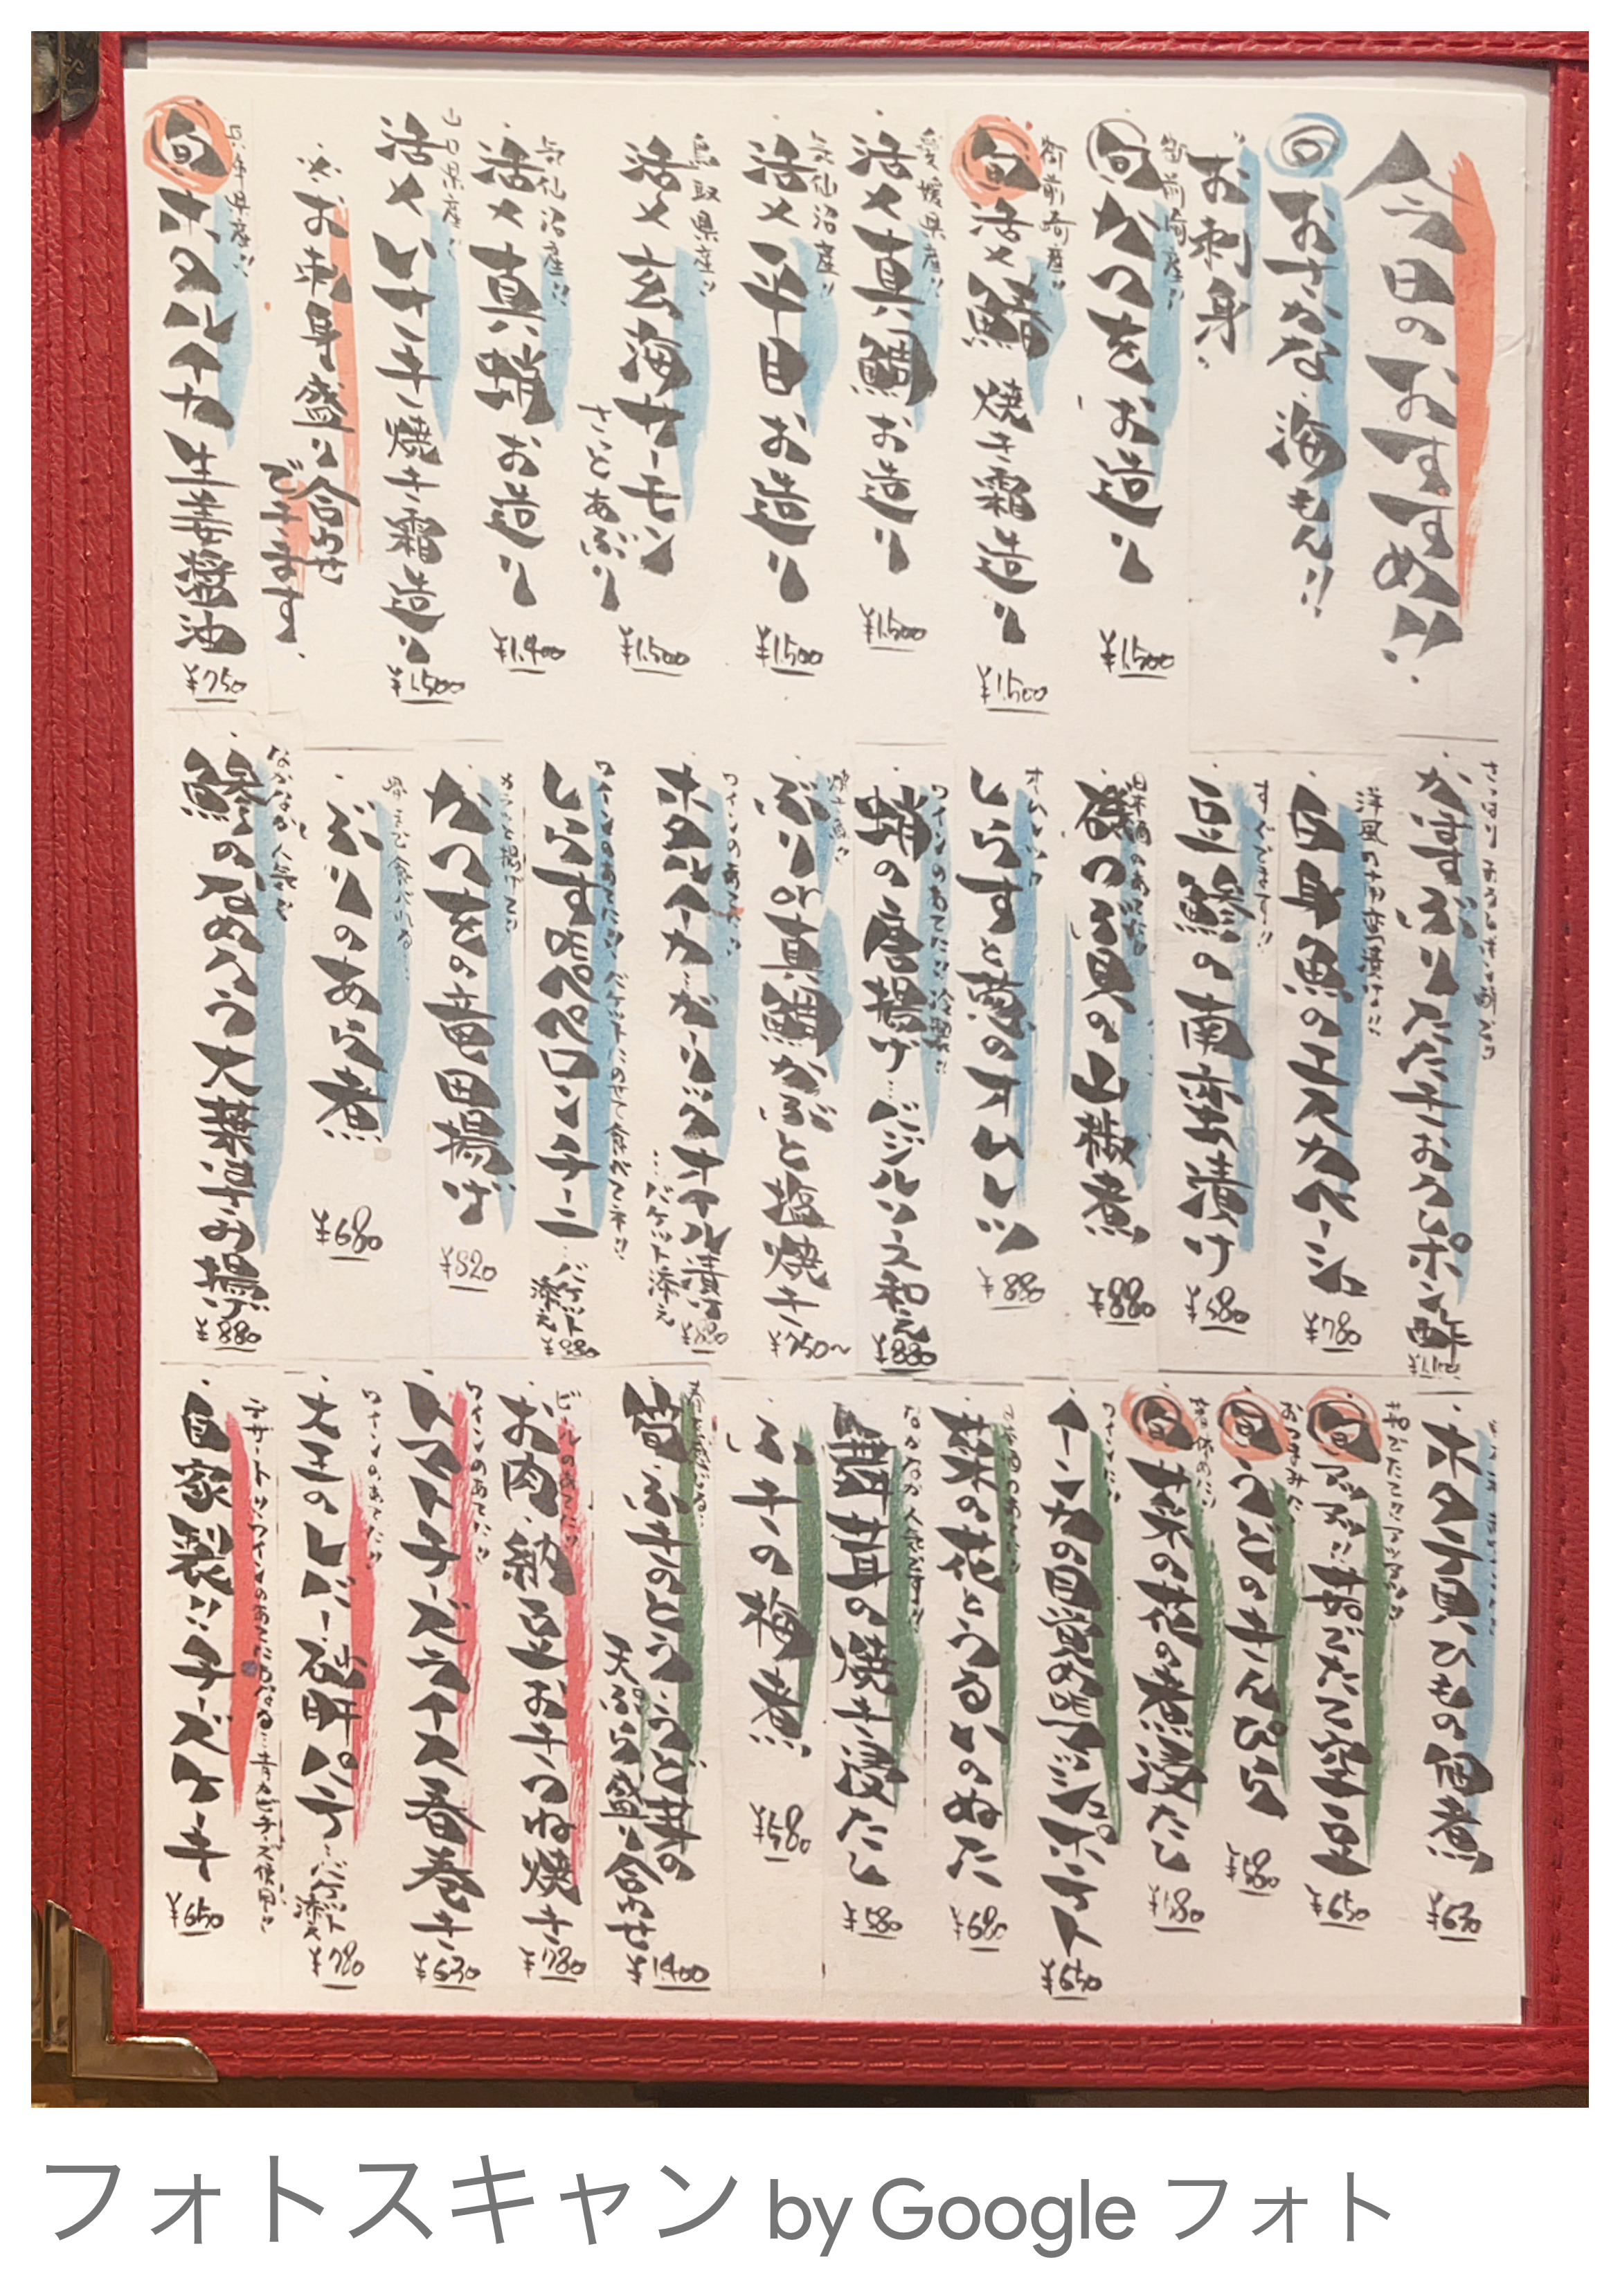 今日のおすすめ!!
旬 おさかな 海もん!!
お刺身
御前崎産!!
旬 かつをお造り ¥1,500
御前崎産!!
旬 活〆鰆 焼き霜造り ¥1,500
愛媛県産!!
活〆真鯛お造り ¥1,500
気仙沼産!!
活〆平目お造り ¥1,500
鳥取県産!!
活〆玄海サーモン
さっとあぶり ¥1,500
気仙沼産!!
活〆真蛸お造り ¥1,400
山口県産!!
活〆いさき焼き霜造り ¥1,500
※お刺身盛り合わせ
できます
兵庫県産!!
旬 ホタルイカ生姜醤油 ¥750
さっぱりおろしポン酢で!!
かすぶりたたきおろしポン酢
洋風の甘酢漬け!!
白身魚のエスカベーシュ ¥780
すぐでます!!
豆鯵の南蛮漬け ¥680
日本酒のあてに!!
磯つぶ貝の山椒煮 ¥880
オムレツ!!
しらすと葱のオムレツ ¥880
ワインのあてに!!冷製!!
蛸の唐揚げ…バジルソース和え ¥880
焼き魚!!
ぶりor真鯛かぶと塩焼き ¥750～
ワインのあてに!!
ホタルイカ…ガーリックオイル漬け
…バケット添え ¥880
ワインのあてに!!バケットにのせて食べてネ!!
しらす咋ペペロンチーニ…バケット添え ¥880
カラッと揚げて!!
かつをの竜田揚げ ¥820
骨まで食べれる…
ぶりのあら煮 ¥680
なかなか人気で
鯵のなめろう大葉はさみ揚げ ¥880
ホタテ貝ひもの佃煮 ¥630
茹でたて!!アツアツ!!
旬 アツアツ!!茹でたて空豆 ¥650
おつまみに
旬 うどのきんぴら ¥580
箸休めに!!
旬 菜の花の煮浸たし ¥580
ワインに!!
インカの目覚め咋アンシポテト ¥650
日本酒のあてに!!
菜の花とうるいのぬた ¥680
なかなか人気です!!
舞茸の焼き浸たし ¥580
ふきの梅煮 ¥580
春を感じる…
筍・ふきのとう・うど・茸の
天ぷら盛り合わせ ¥1,400
ビールのあてに!!
お肉・納豆・おきつね焼き ¥780
ワインのあてに!!
トマトチーズライス春巻き ¥630
ワインのあてに!!
大王のレバー・砂肝パテ…バケット添え ¥780
デザート!!ワインのあてにもなる…青カビチーズ使用!!
自家製!!チーズケーキ ¥650
フォトスキャン by Google フォト